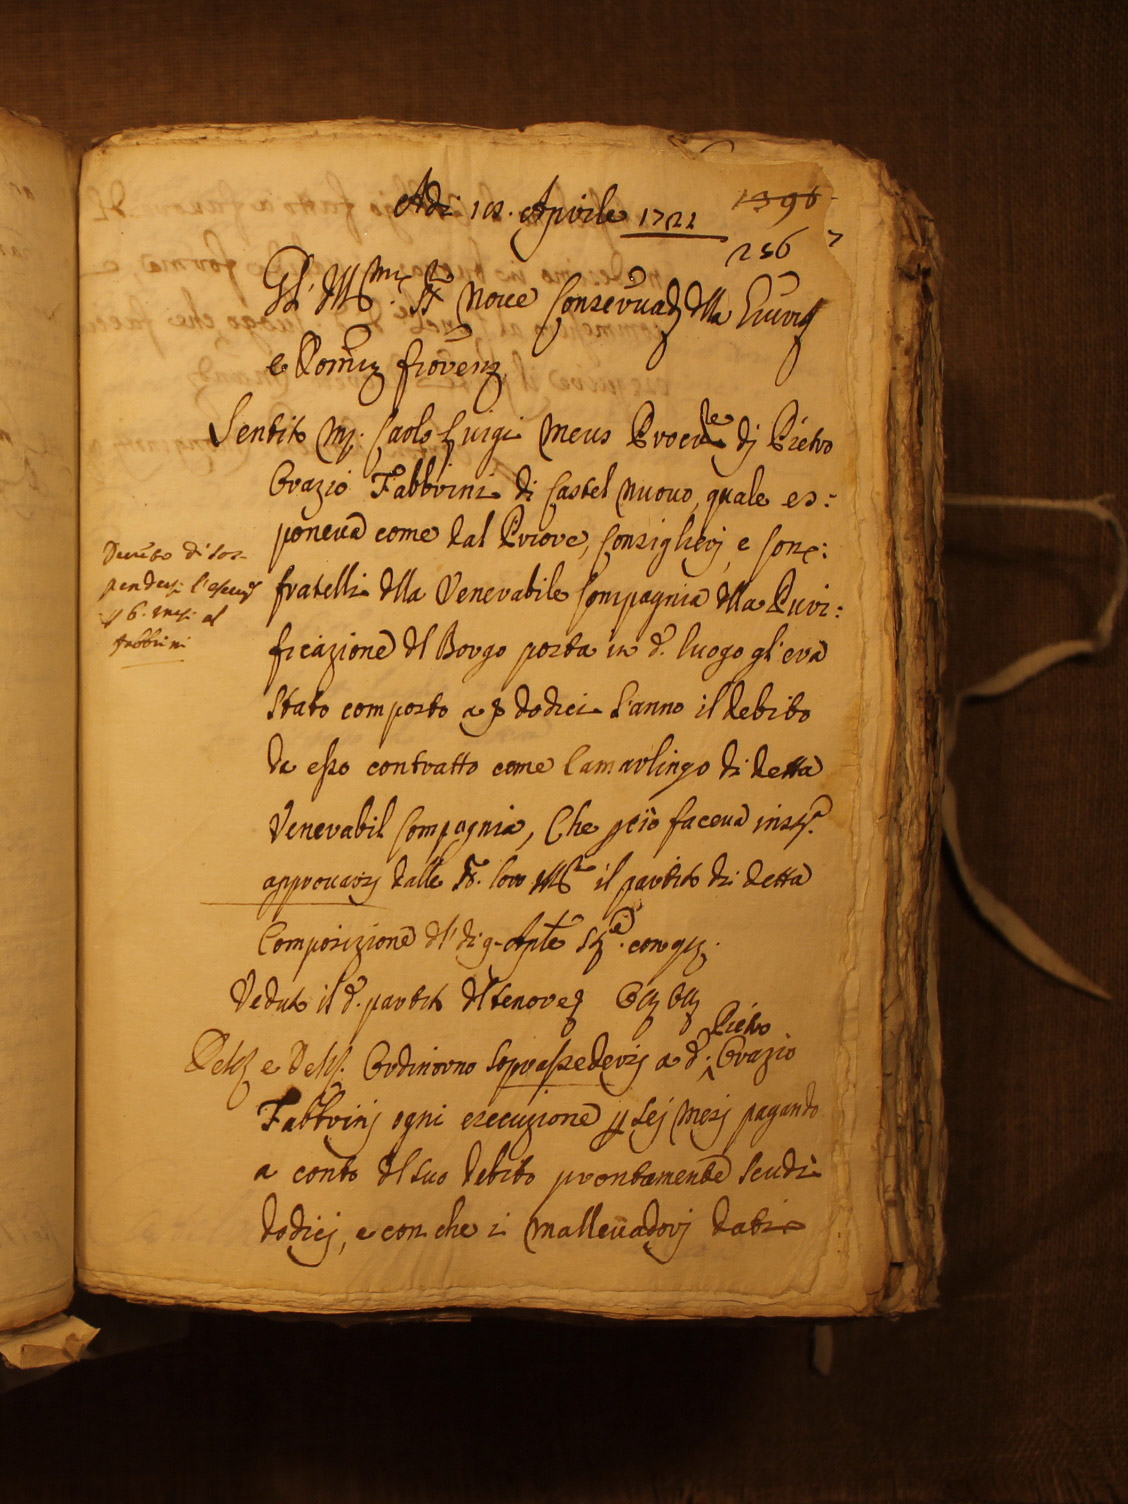 Adi 18. Aprile 1722
1396
256
Gl' M.mi SS.ri Nove Conservad. dlla Giurisd.
e Dominiz fiorenz
Sentito m. Carlo Luigi Meus Procu.re dj Pietro
Orazio Fabbrini di Castel nuovo, quale es:
poneva come dal Priore, Consiglierj, e Con:
fratelli dlla Venerabile Compagnia dlla Puri:
ficazione dl Borgo posta in d.o luogo gl'era
stato composto a dodici l'anno il debito
da esso contratto come Camarlingo di detta
Venerabil Compagnia, Che però faceva inst.a
approvarsj dalle SS. loro M.e il partito di detta
Composizione dl' di 9. Aple con
Veduto il d.o partito dl tenore
Pietro
e Ordinorno soprassedersj a d.o Orazio
Fabbrinj ogni esecuzione p sej mesj pagando
a conto dl suo debito prontamente scudi
dodicj, e con che i mallevadorj dati
Decreto di sos-
pendersi l'esecuz
p 6. mesi al
Fabbrini